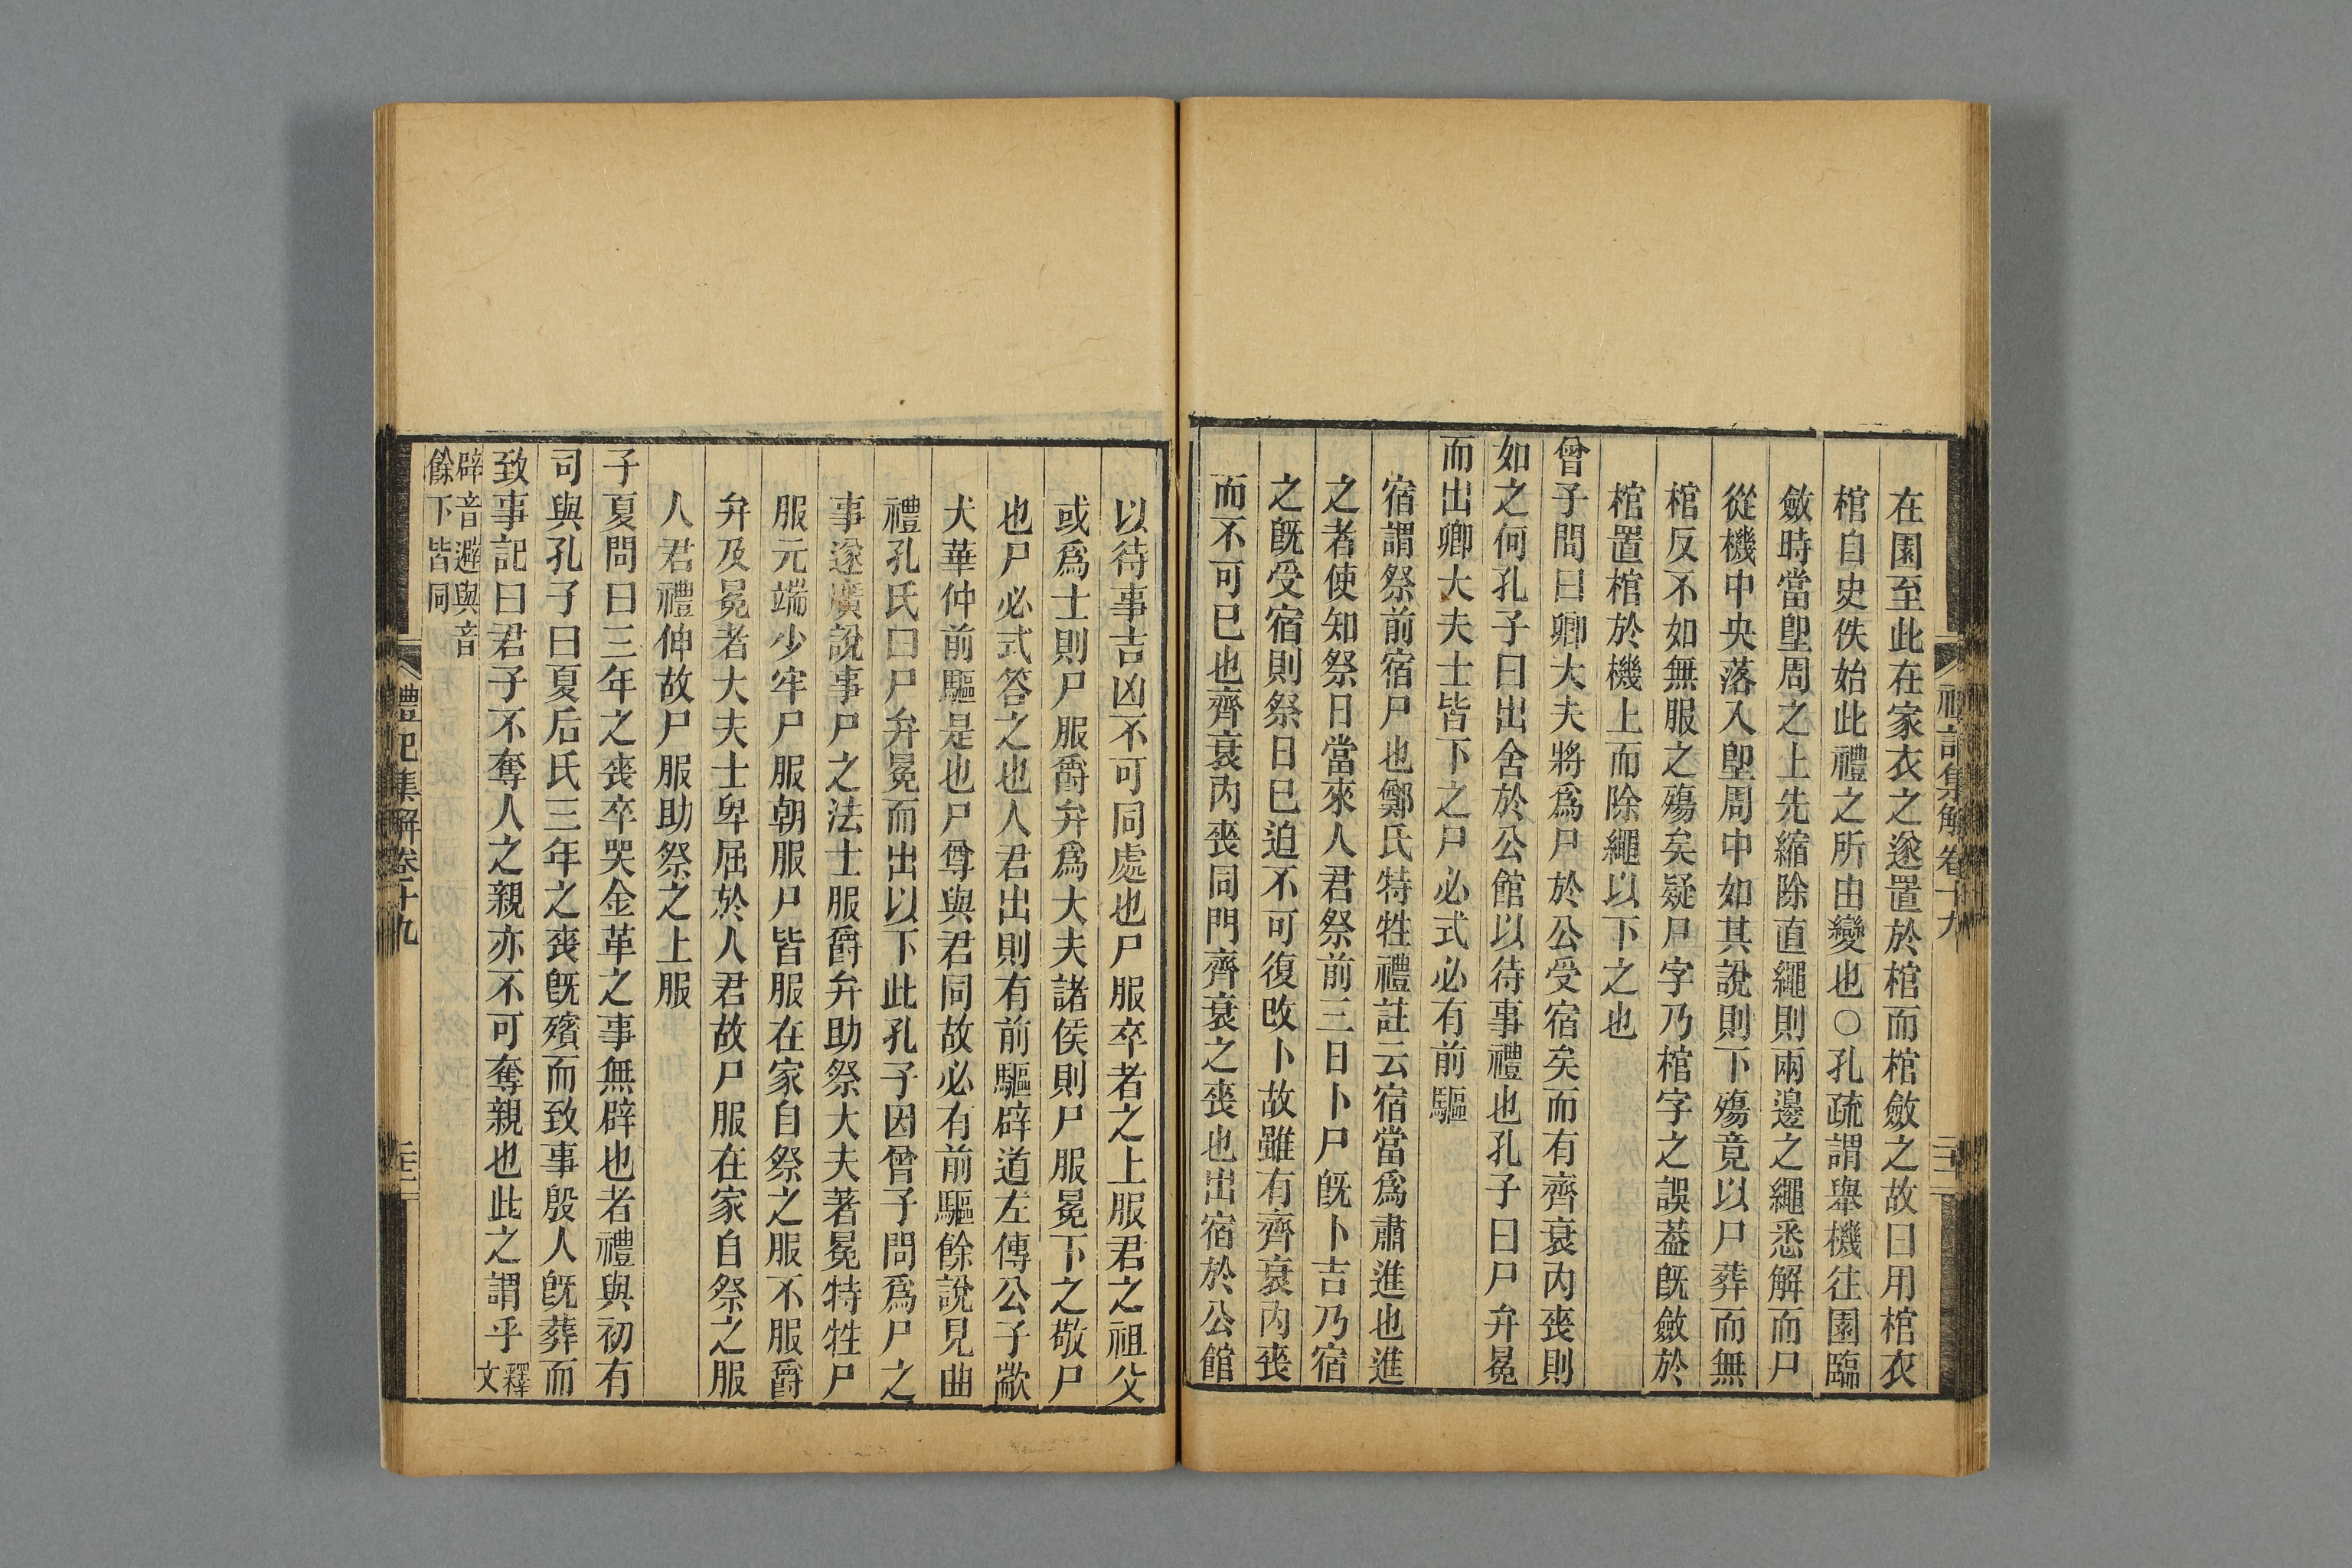 在園至此在家衣之遂置於棺而棺斂之故曰用棺衣
棺自史佚始此禮之所由變也○孔疏謂舉機往園臨
斂時當堲周之上先縮除直繩則兩邊之繩悉解而尸
從機中央落入堲周中如其說則下殤竟以尸葬而無
棺反不如無服之殤矣疑尸字乃棺字之誤葢既斂於
棺置棺於機上而除繩以下之也
曾子問曰卿大夫將爲尸於公受宿矣而有齊衰內喪則
如之何孔子曰出舍於公館以待事禮也孔子曰尸弁冕
而出卿大夫士皆下之尸必式必有前驅
宿謂祭前宿尸也鄭氏特牲禮註云宿當爲肅進也進
之者使知祭日當來人君祭前三日卜尸旣卜吉乃宿
之旣受宿則祭日已迫不可復改卜故雖有齊衰內喪
而不可已也齊衰內喪同門齊衰之喪也出宿於公館
以待事吉凶不可同處也尸服卒者之上服君之祖父
或爲士則尸服爵弁爲大夫諸侯則尸服冕下之敬尸
也尸必式答之也人君出則有前驅辟道左傳公子歂
犬華仲前驅是也尸尊與君同故必有前驅餘說見曲
禮孔氏曰尸弁冕而出以下此孔子因曾子問爲尸之
事遂廣說事尸之法士服爵弁助祭大夫著冕特牲尸
服元端少牢尸服朝服尸皆服在家自祭之服不服爵
弁及冕者大夫士卑屈於人君故尸服在家自祭之服
人君禮伸故尸服助祭之上服
子夏問曰三年之喪卒哭金革之事無辟也者禮與初有
司與孔子曰夏后氏三年之喪旣殯而致事殷人旣葬而
致事記曰君子不奪人之親亦不可奪親也此之謂乎釋文
辟音避與音
餘下皆同
禮記集解卷十九